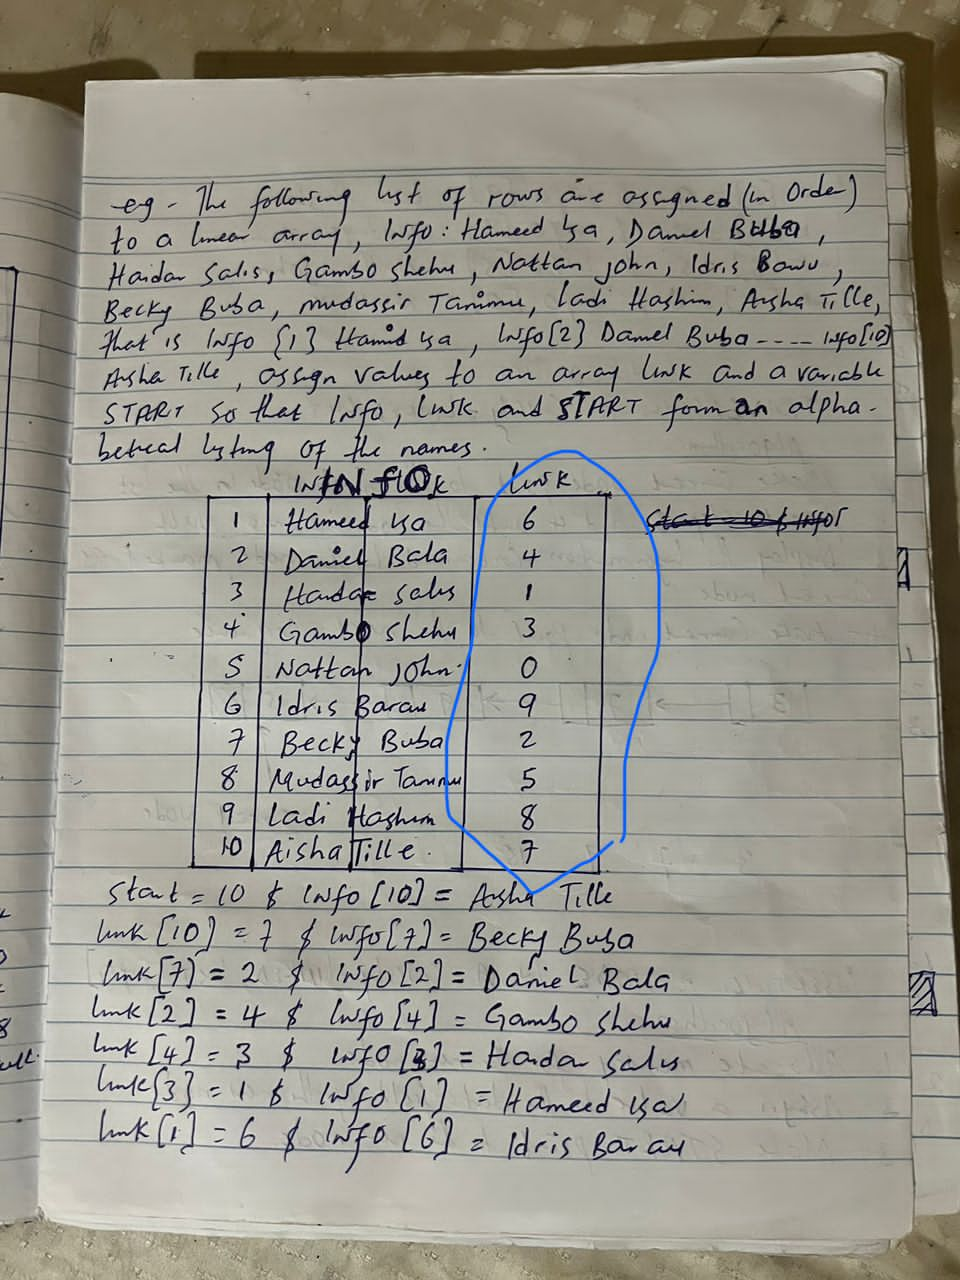 eg - The following list of rows are assigned (in Order)
to a linear array, Info : Hameed Isa, Daniel Buba,
Haidar Salis, Gambo Shehu, Nattan John, Idris Bawu,
Becky Buba, Mudassir Tanimu, Ladi Hashim, Aisha Tille,
that is Info {1} Hamid Isa, Info [2] Daniel Buba ---- Info [10]
Aisha Tille, assign values to an array link and a variable
START so that Info, link and START form an alpha-
betical listing of the names.
INFO Link
1 Hameed Isa 6
2 Daniel Bala 4
3 Haidar Salis 1
4 Gambo Shehu 3
5 Nattan John 0
6 Idris Barau 9
7 Becky Buba 2
8 Mudassir Tanimu 5
9 Ladi Hashim 8
10 Aisha Tille 7
Start = 10 $ Info [10] = Aisha Tille
link [10] = 7 $ Info [7] = Becky Buba
link [7] = 2 $ INFO [2] = Daniel Bala
link [2] = 4 $ Info [4] = Gambo Shehu
link [4] = 3 $ INFO [3] = Haidar Salis
link [3] = 1 $ INFO [1] = Hameed Isa
link [1] = 6 $ INFO [6] = Idris Barau